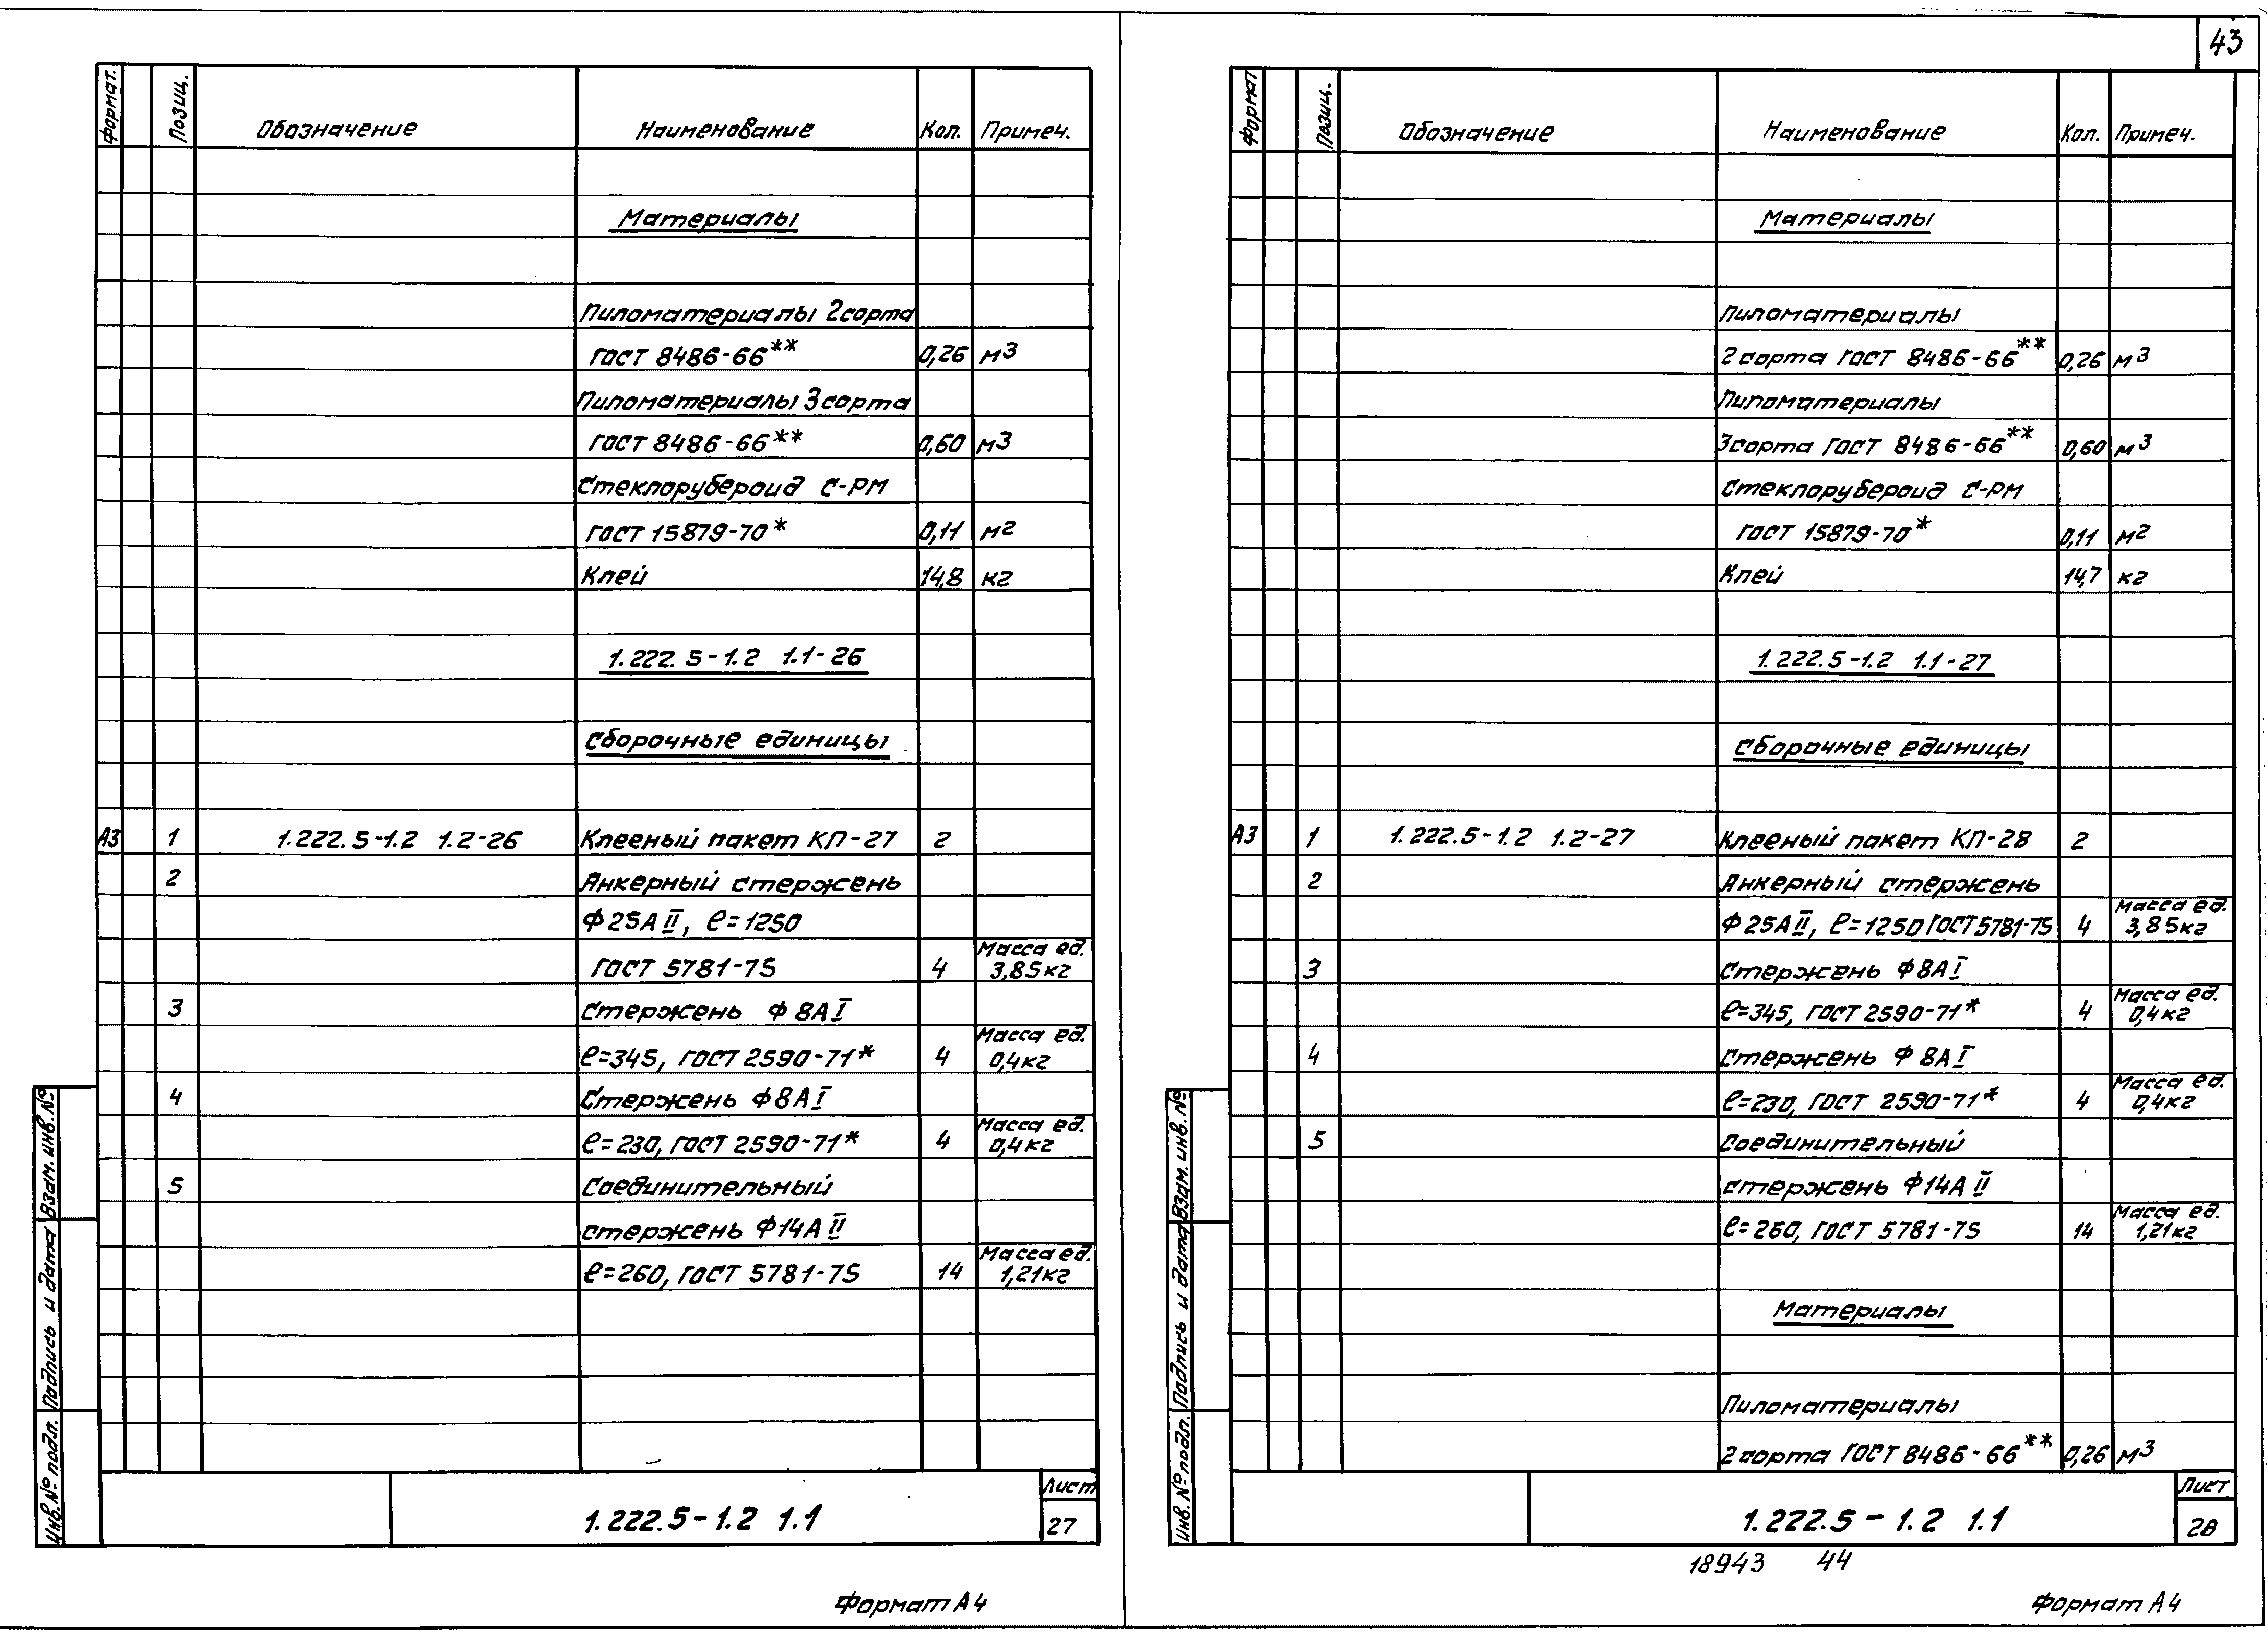 43
Формат. Позиц. Обозначение Наименование Кол. Примеч.
Материалы
Пиломатериалы 2 сорта
ГОСТ 8486-66** 0,26 м3
Пиломатериалы 3 сорта
ГОСТ 8486-66** 0,60 м3
Стеклорубероид С-РМ
ГОСТ 15879-70* 0,11 м2
Клей 14,8 кг
1.222.5-1.2 1.1-26
Сборочные единицы
А3 1 1.222.5-1.2 1.2-26 Клееный пакет КП-27 2
2 Анкерный стержень
Ф25АII, ℓ=1250
ГОСТ 5781-75 4 Масса ед.
3,85кг
3 Стержень Ф8АI
ℓ=345, ГОСТ 2590-71* 4 Масса ед.
0,4кг
4 Стержень Ф8АI
ℓ=230, ГОСТ 2590-71* 4 Масса ед.
0,4кг
5 Соединительный
стержень Ф14АII
ℓ=260, ГОСТ 5781-75 14 Масса ед.
1,21кг
Взам. инв. №
Подпись и дата
Инв. № подл.
1.222.5-1.2 1.1
Лист
27
Формат А4
Формат Позиц. Обозначение Наименование Кол. Примеч.
Материалы
Пиломатериалы
2 сорта ГОСТ 8486-66** 0,26 м3
Пиломатериалы
3 сорта ГОСТ 8486-66** 0,60 м3
Стеклорубероид С-РМ
ГОСТ 15879-70* 0,11 м2
Клей 14,7 кг
1.222.5-1.2 1.1-27
Сборочные единицы
А3 1 1.222.5-1.2 1.2-27 Клееный пакет КП-28 2
2 Анкерный стержень
Ф25АII, ℓ=1250 ГОСТ 5781-75 4 Масса ед.
3,85кг
3 Стержень Ф8АI
ℓ=345, ГОСТ 2590-71* 4 Масса ед.
0,4кг
4 Стержень Ф8АI
ℓ=230, ГОСТ 2590-71* 4 Масса ед.
0,4кг
5 Соединительный
стержень Ф14АII
ℓ=260, ГОСТ 5781-75 14 Масса ед.
1,21кг
Материалы
Пиломатериалы
2 сорта ГОСТ 8486-66** 0,26 м3
Взам. инв. №
Подпись и дата
Инв. № подл.
1.222.5-1.2 1.1
Лист
28
18943 44
Формат А4